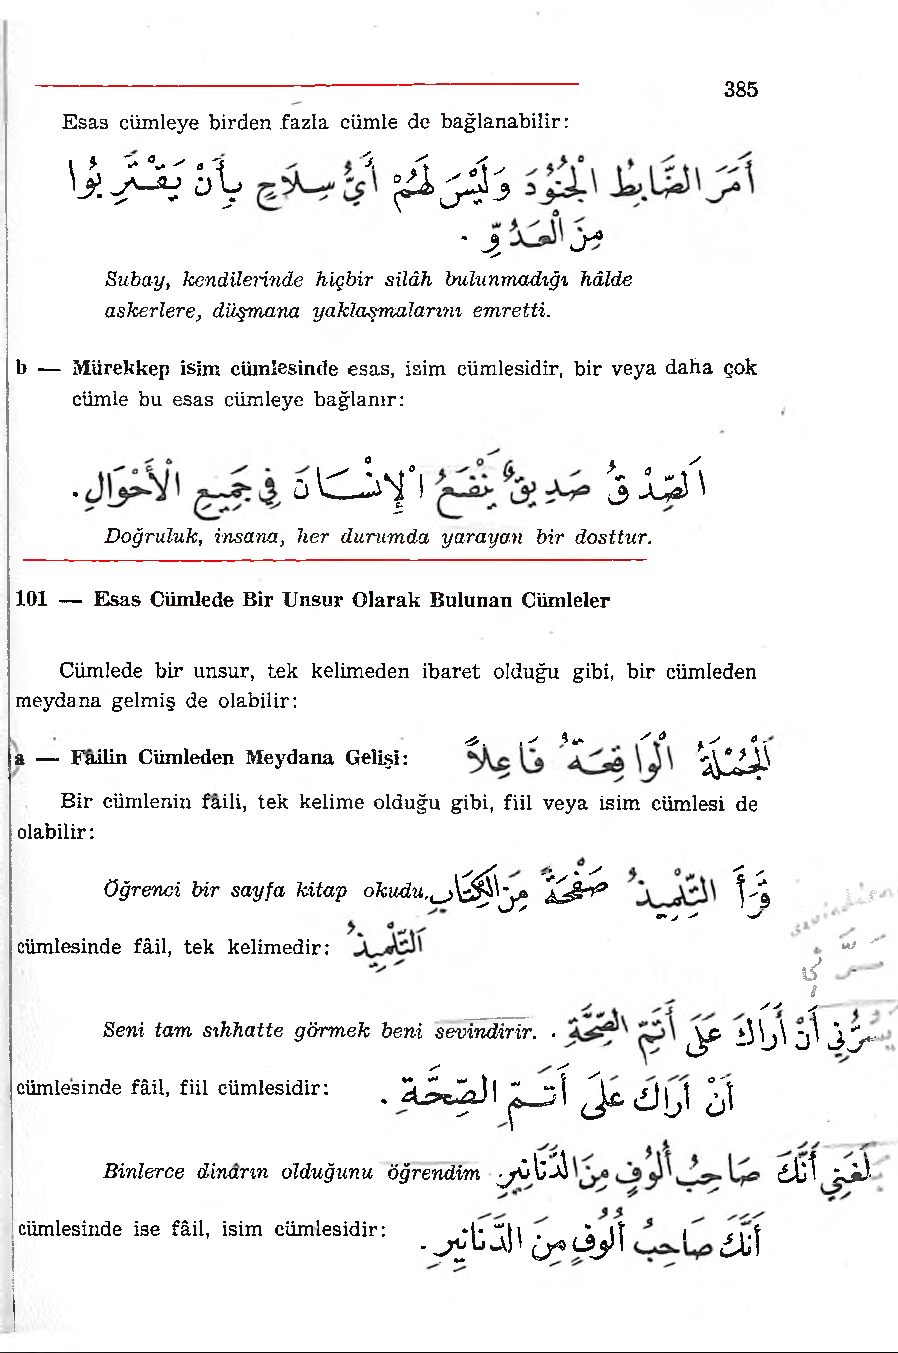 385
Esas cümleye birden fazla cümle de bağlanabilir:
أَمَرَ الضَّابِطُ الْجُنُودَ وَلَيْسَ لَهُمْ أَيُّ سِلَاحٍ بِأَنْ يَقْتَرِبُوا
مِنَ الْعَدُوِّ .
Subay, kendilerinde hiçbir silâh bulunmadığı hâlde
askerlere, düşmana yaklaşmalarını emretti.
b — Mürekkep isim cümlesinde esas, isim cümlesidir, bir veya daha çok
cümle bu esas cümleye bağlanır:
اَلصِّدْقُ صَدِيقٌ يَنْفَعُ الْإِنْسَانَ فِي جَمِيعِ الْأَحْوَالِ.
Doğruluk, insana, her durumda yarayan bir dosttur.
101 — Esas Cümlede Bir Unsur Olarak Bulunan Cümleler
Cümlede bir unsur, tek kelimeden ibaret olduğu gibi, bir cümleden
meydana gelmiş de olabilir:
a — Fâilin Cümleden Meydana Gelişi: اَلْجُمْلَةُ الْوَاقِعَةُ فَاعِلاً
Bir cümlenin fâili, tek kelime olduğu gibi, fiil veya isim cümlesi de
olabilir:
Öğrenci bir sayfa kitap okudu. قَرَأَ التِّلْمِيذُ صَفْحَةً مِنَ الْكِتَابِ
cümlesinde fâil, tek kelimedir: التِّلْمِيذُ
Seni tam sıhhatte görmek beni sevindirir. يَسُرُّنِي أَنْ أَرَاكَ عَلَى أَتَمِّ الصِّحَّةِ .
cümlesinde fâil, fiil cümlesidir: أَنْ أَرَاكَ عَلَى أَتَمِّ الصِّحَّةِ .
Binlerce dinârın olduğunu öğrendim بَلَغَنِي أَنَّكَ صَاحِبُ أُلُوفٍ مِنَ الدَّنَانِيرِ.
cümlesinde ise fâil, isim cümlesidir: أَنَّكَ صَاحِبُ أُلُوفٍ مِنَ الدَّنَانِيرِ.